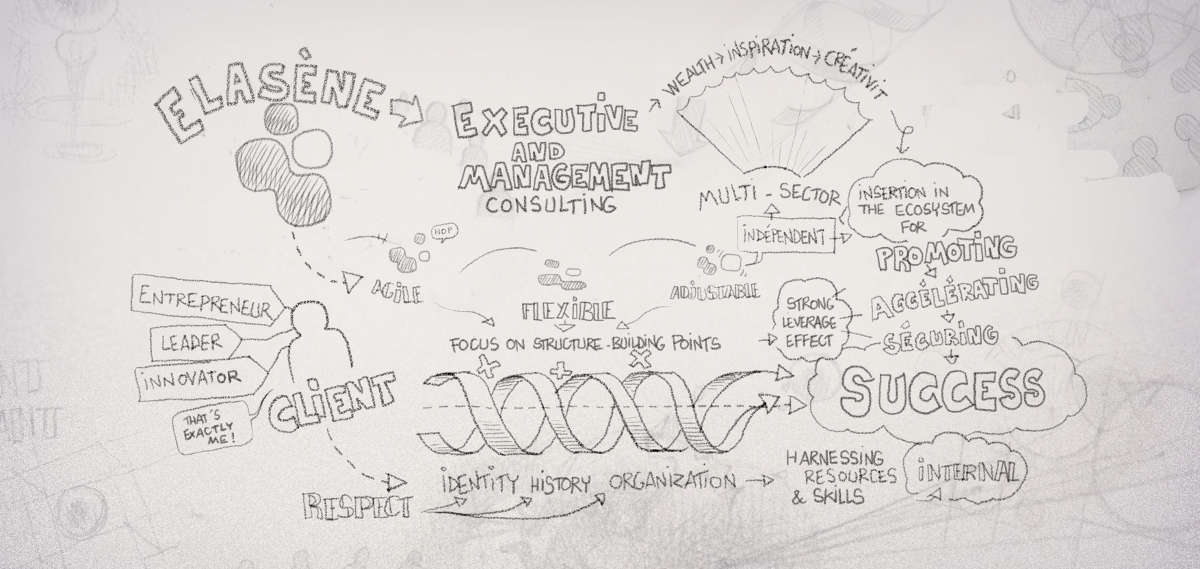 ELASÈNE
EXECUTIVE
AND
MANAGEMENT
CONSULTING
WEALTH → INSPIRATION → CRÉATIVIT
MULTI - SECTOR
INDÉPENDENT
INSERTION IN
THE ECOSYSTEM
FOR
PROMOTING
ACCÉLÉRATING
SÉCURING
SUCCESS
STRONG
LEVERAGE
EFFECT
HOP
AGILE
FLEXIBLE
ADJUSTABLE
FOCUS ON STRUCTURE - BUILDING POINTS
ENTREPRENEUR
LEADER
INNOVATOR
THAT'S
EXACTLY
ME!
CLIENT
RESPECT
IDENTITY HISTORY ORGANIZATION
HARNESSING
RESOURCES
& SKILLS
INTERNAL